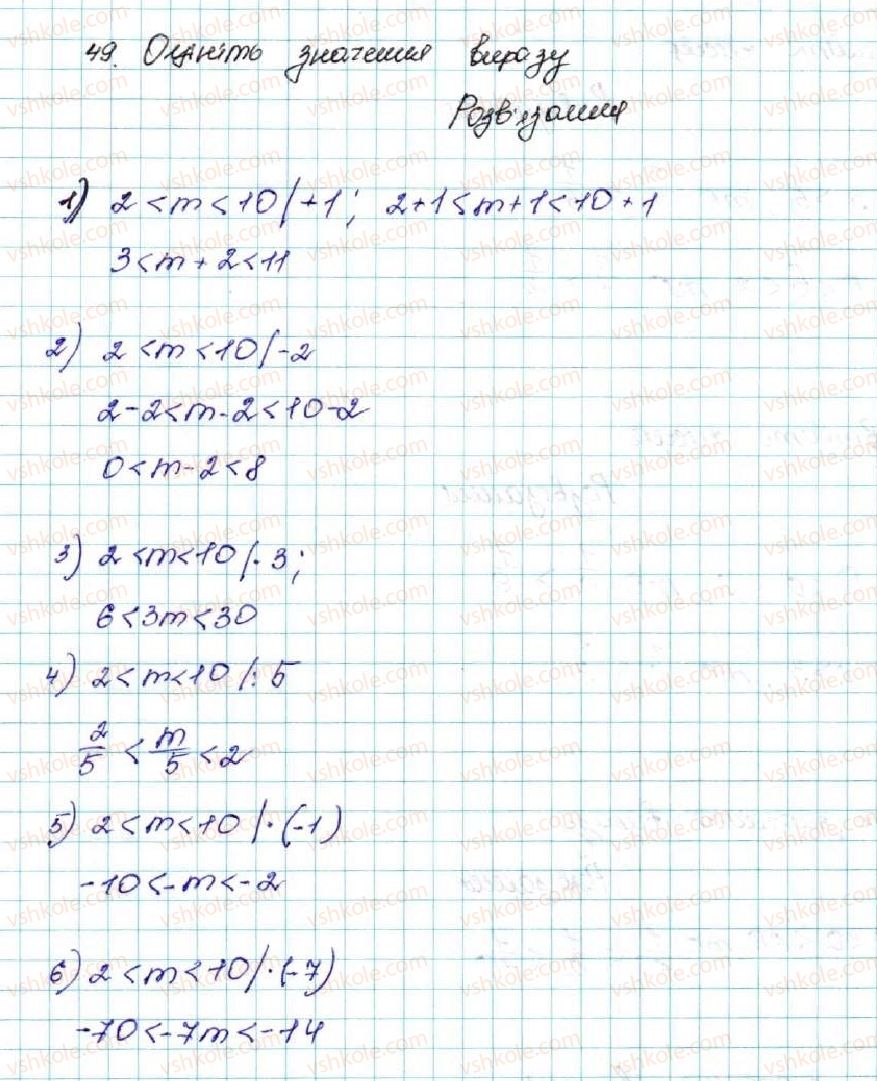 49. Оцініть значення виразу
Розв'язання
1) 2 < m < 10 | + 1; 2+1 < m+1 < 10+1
3 < m + 2 < 11
2) 2 < m < 10 | - 2
2 - 2 < m - 2 < 10 - 2
0 < m - 2 < 8
3) 2 < m < 10 | · 3;
6 < 3m < 30
4) 2 < m < 10 | : 5
2/5 < m/5 < 2
5) 2 < m < 10 | · (-1)
-10 < -m < -2
6) 2 < m < 10 | · (-7)
-70 < -7m < -14
vshkole.com